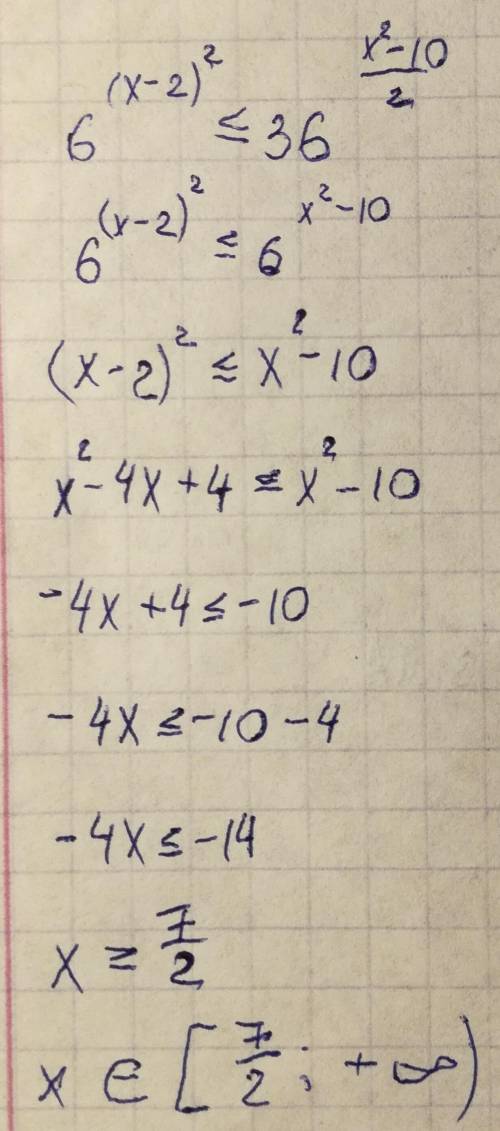 6^(x-2)^2 ≤ 36^((x^2-10)/2)
6^(x-2)^2 ≤ 6^(x^2-10)
(x-2)^2 ≤ x^2-10
x^2-4x+4 ≤ x^2-10
-4x+4 ≤ -10
-4x ≤ -10-4
-4x ≤ -14
x ≥ 7/2
x ∈ [7/2; +∞)